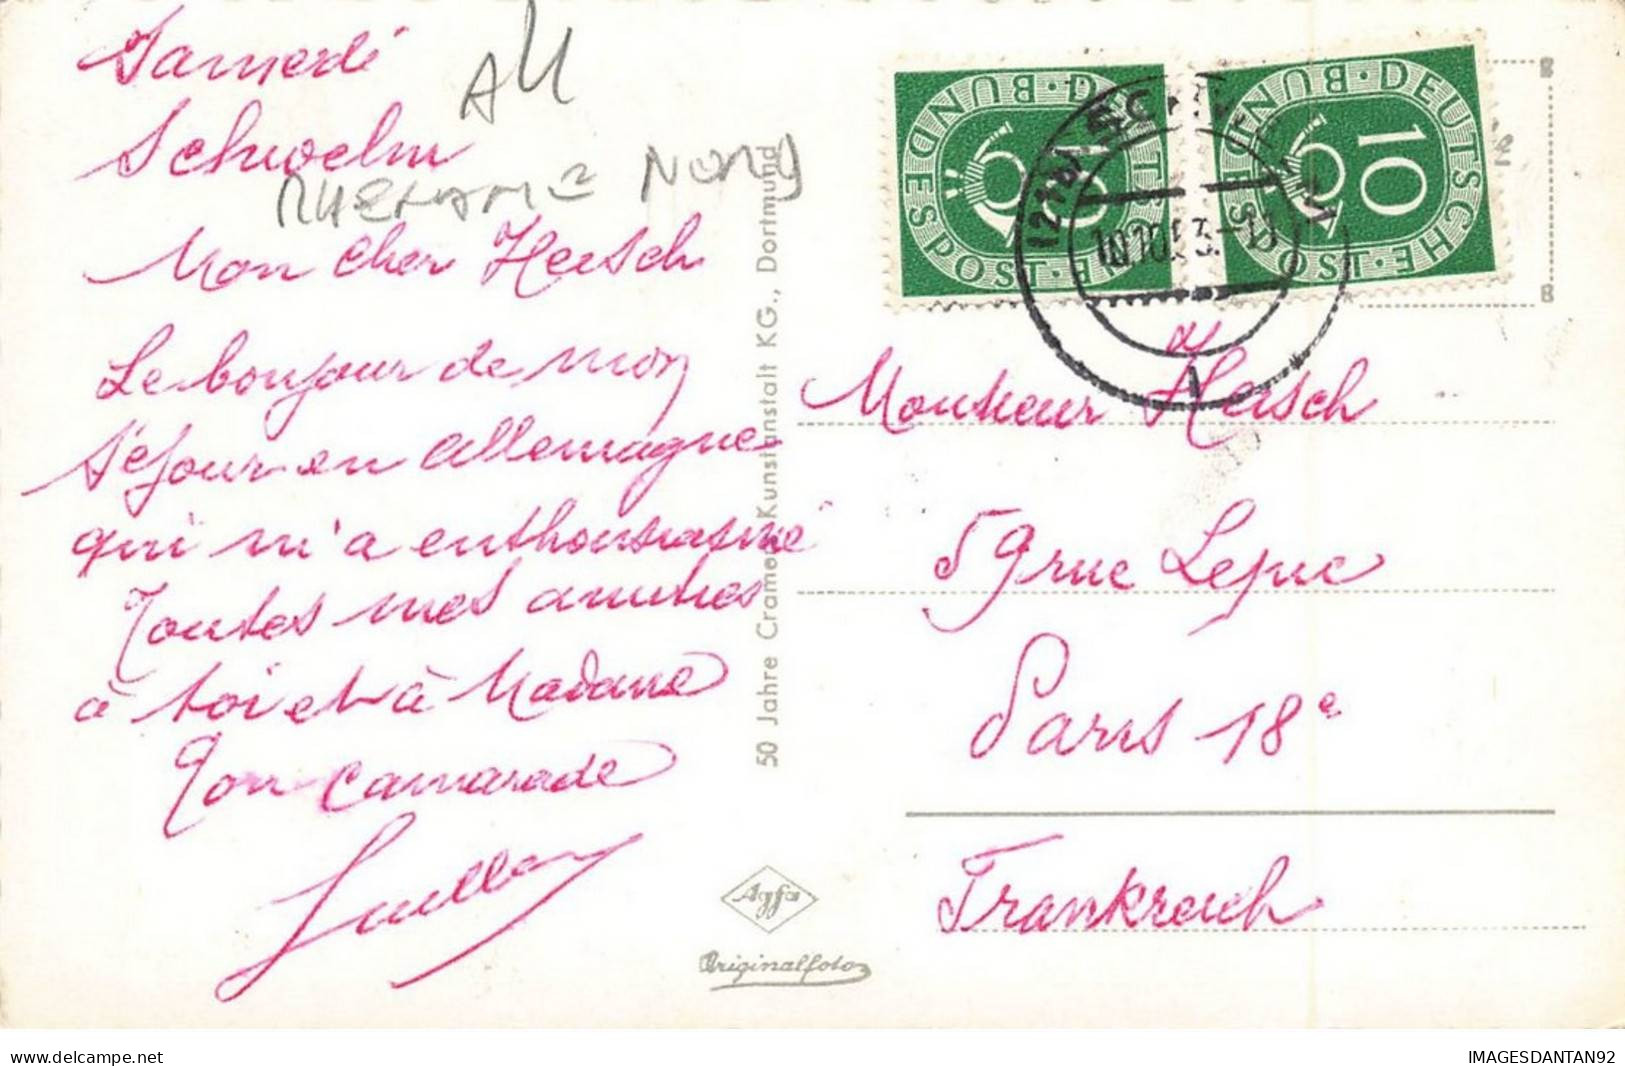 Samedi
Schwelm
All
RHENANIE NORD
Mon cher Hersch
Le bonjour de mon
séjour en allemagne
qui m'a enthousiasmé
Toutes mes amitiés
à toi et à Madame
Ton camarade
50 Jahre Cramers Kunstanstalt KG., Dortmund
Agfa
Originalfoto
DEUTSCHE BUNDESPOST
DEUTSCHE BUNDESPOST
10
SCHWELM
10.10.53
Monsieur Hersch
59 rue Lepic
Paris 18e
Frankreich
www.delcampe.net
IMAGESDANTAN92